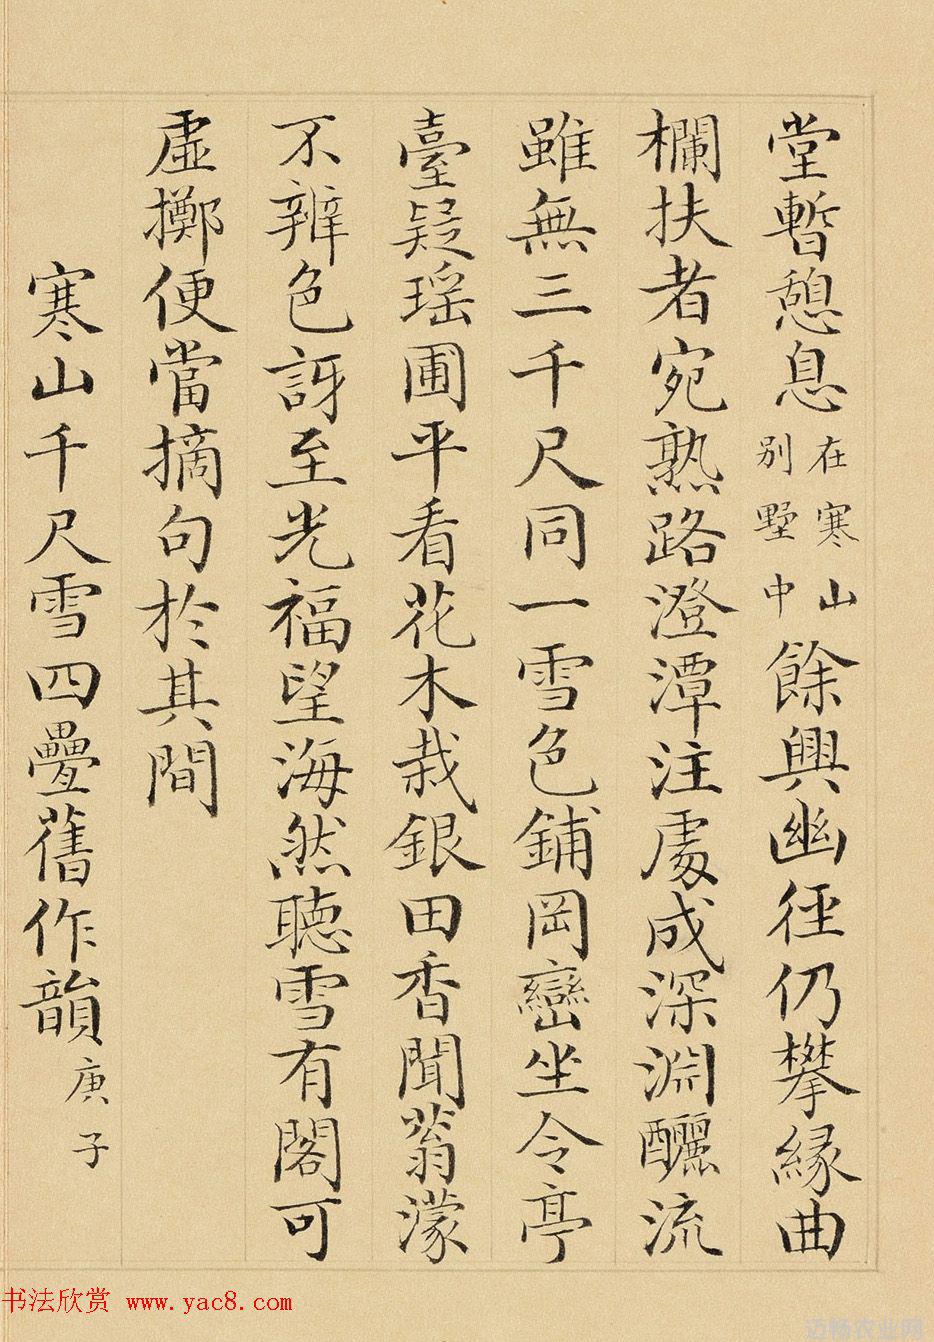 堂暫憩息在寒山別墅中餘興幽徑仍攀緣曲
欄扶者宛熟路澄潭注處成深淵釃流
雖無三千尺同一雪色鋪岡巒坐令亭
臺疑瑶圃平看花木栽銀田香聞蓊濛
不辨色訝至光福望海然聽雪有閣可
虛擲便當摘句於其間
寒山千尺雪四疊舊作韻庚子
书法欣赏 www.yac8.com
迈畅农业网